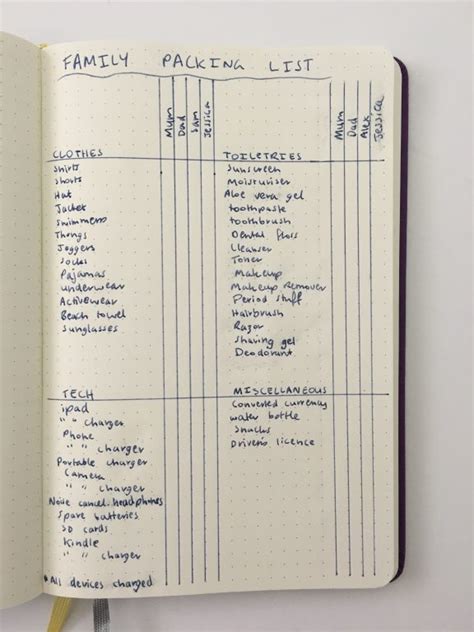 FAMILY PACKING LIST
Mum
Dad
Sam
Jessica
CLOTHES
Shirts
Shorts
Hat
Jacket
Swimmers
Thongs
Joggers
Socks
Pajamas
underwear
Activewear
Beach towel
Sunglasses
TECH
ipad
" " charger
Phone
" " charger
Portable charger
Camera
" " charger
Noise cancel. headphones
Spare batteries
SD cards
Kindle
" " charger
All devices charged
Mum
Dad
Alex
Jessica
TOILETRIES
Sunscreen
Moisturiser
Aloe vera gel
toothpaste
toothbrush
Dental floss
Cleanser
Toner
Makeup
Makeup Remover
Period stuff
Hairbrush
Razor
Shaving gel
Deodorant
MISCELLANEOUS
Converted currency
water bottle
Snacks
Driver's licence